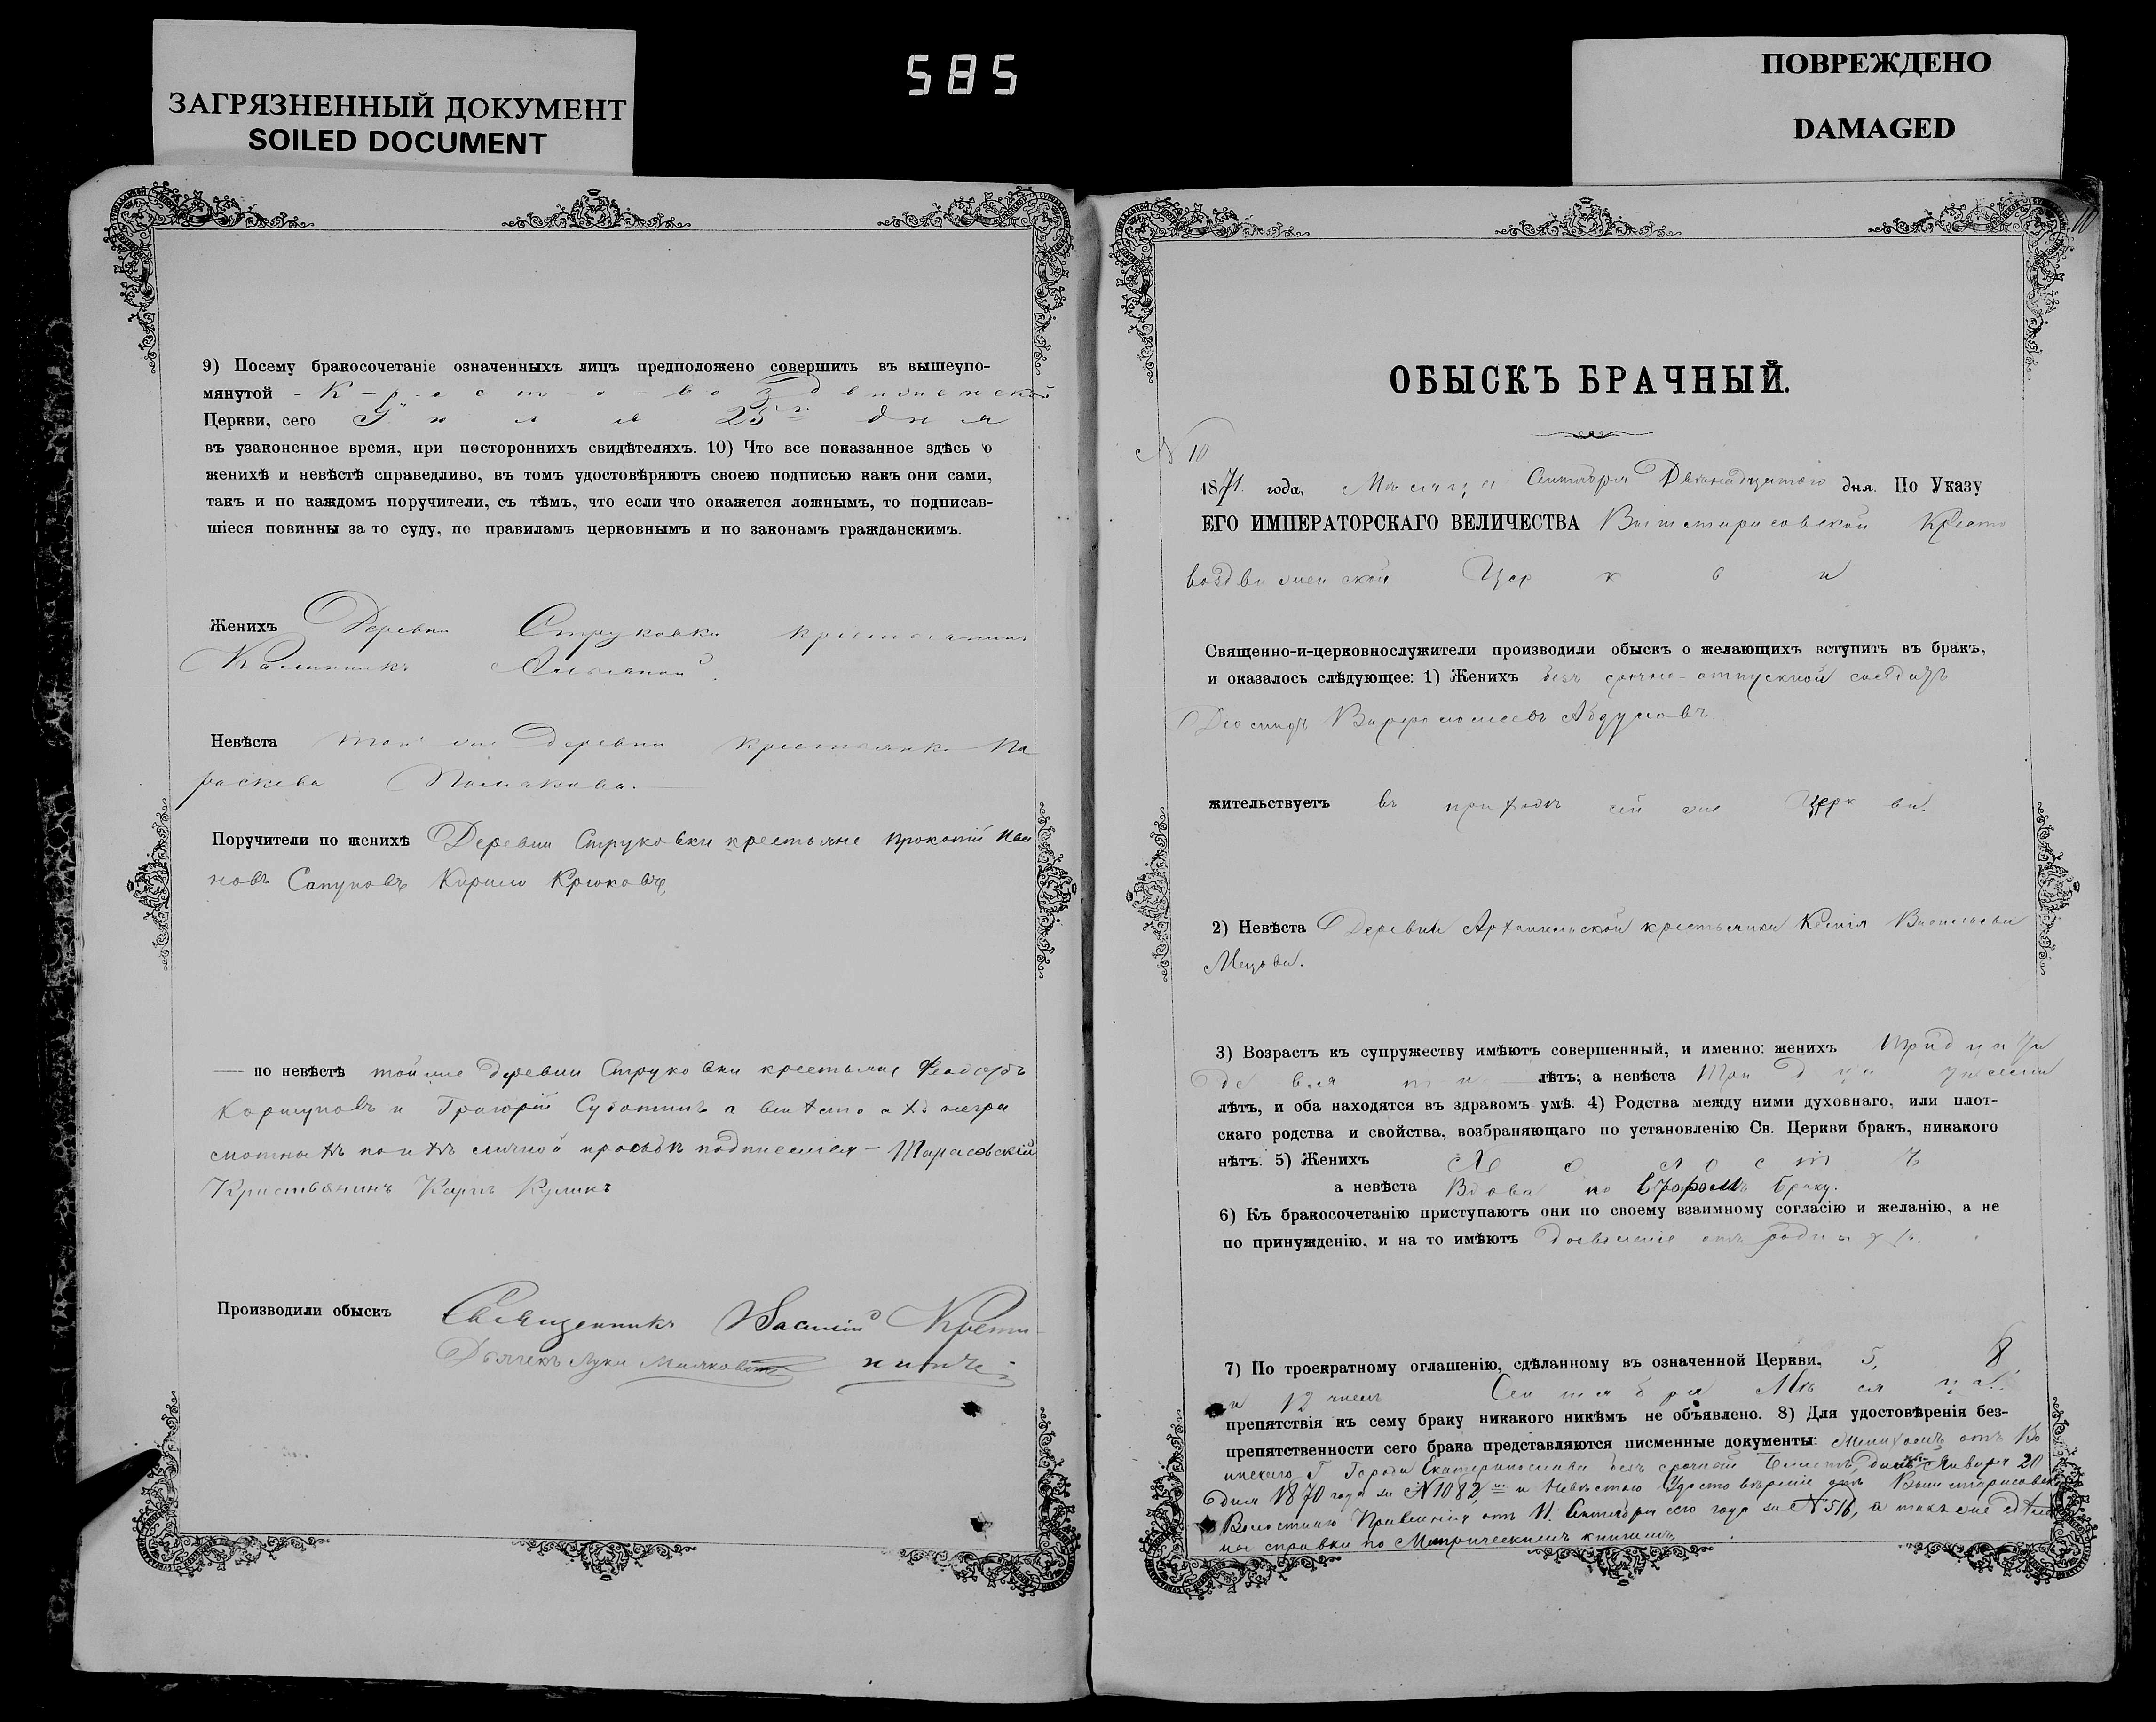 ЗАГРЯЗНЕННЫЙ ДОКУМЕНТ
SOILED DOCUMENT
585
ПОВРЕЖДЕНО
DAMAGED
9) Посему бракосочетаніе означенныхъ лицъ предположено совершить въ вышеупо-
мянутой Кресто-воздвиженской
Церкви, сего Іюля 25го дня
въ узаконенное время, при постороннихъ свидѣтеляхъ. 10) Что все показанное здѣсь о
женихѣ и невѣстѣ справедливо, въ томъ удостовѣряютъ своею подписью какъ они сами,
такъ и по каждомъ поручители, съ тѣмъ, что если что окажется ложнымъ, то подписав-
шіеся повинны за то суду, по правиламъ церковнымъ и по законамъ гражданскимъ.
Женихъ Деревни Струковки крестьянинъ
Калинникъ
Невѣста той же деревни крестьянка Па
раскева
Поручители по женихѣ Деревни Струковки крестьяне Прокопій Ива
новъ Сапуновъ Кирило Крюковъ,
— по невѣстѣ той же деревни Струковки крестьяне Феодоръ
Коршуновъ и Григорій Суботинъ а вмѣсто ихъ негра
мотныхъ по ихъ личной прозьбѣ подписался - Тарасовскій
Кристьянинъ Карпъ Куликъ
Производили обыскъ Священникъ Василій Крети-
Дьячекъ Лука
10
ОБЫСКЪ БРАЧНЫЙ.
N 10
1871. года, Месяца Сентября Двенадцатого дня. По Указу
ЕГО ИМПЕРАТОРСКАГО ВЕЛИЧЕСТВА Вытетарасовской Кресто
воздвиженской Церкви
Священно-и-церковнослужители производили обыскъ о желающихъ вступить въ бракъ,
и оказалось слѣдующее: 1) Женихъ безъ срочно-отпускной солдатъ
Варфоломеевъ
жительствуетъ въ приходѣ сей же Церкви.
2) Невѣста Деревни Архангельской крестьянка Ксенія Васильева
3) Возрастъ къ супружеству имѣютъ совершенный, и именно: женихъ тридцати
девяти лѣтъ; а невѣста Тридца
лѣтъ, и оба находятся въ здравомъ умѣ. 4) Родства между ними духовнаго, или плот-
скаго родства и свойства, возбраняющаго по установленію Св. Церкви бракъ, никакого
нѣтъ. 5) Женихъ Холостъ
а невѣста Вдова по второмъ браку.
6) Къ бракосочетанію приступаютъ они по своему взаимному согласію и желанію, а не
по принужденію, и на то имѣютъ дозволеніе отъ родныхъ.
7) По троекратному оглашенію, сдѣланному въ означенной Церкви, 5, 8,
и 12 чиселъ Сентября Мѣсяца
препятствія къ сему браку никакого никѣмъ не объявлено. 8) Для удостовѣренія без-
препятственности сего брака представляются писменные документы: Женихомъ отъ Во
инскаго Г. Города Екатеринослава безъ срочный билетъ, данъ Января 20
дня 1870 года за N 1082, и Невѣстою Удостовѣреніе отъ Вышетарасовска
го Волостного Правленія отъ 11 Сентября сего года за N 516, а также
на справки по Метрическимъ книгамъ,